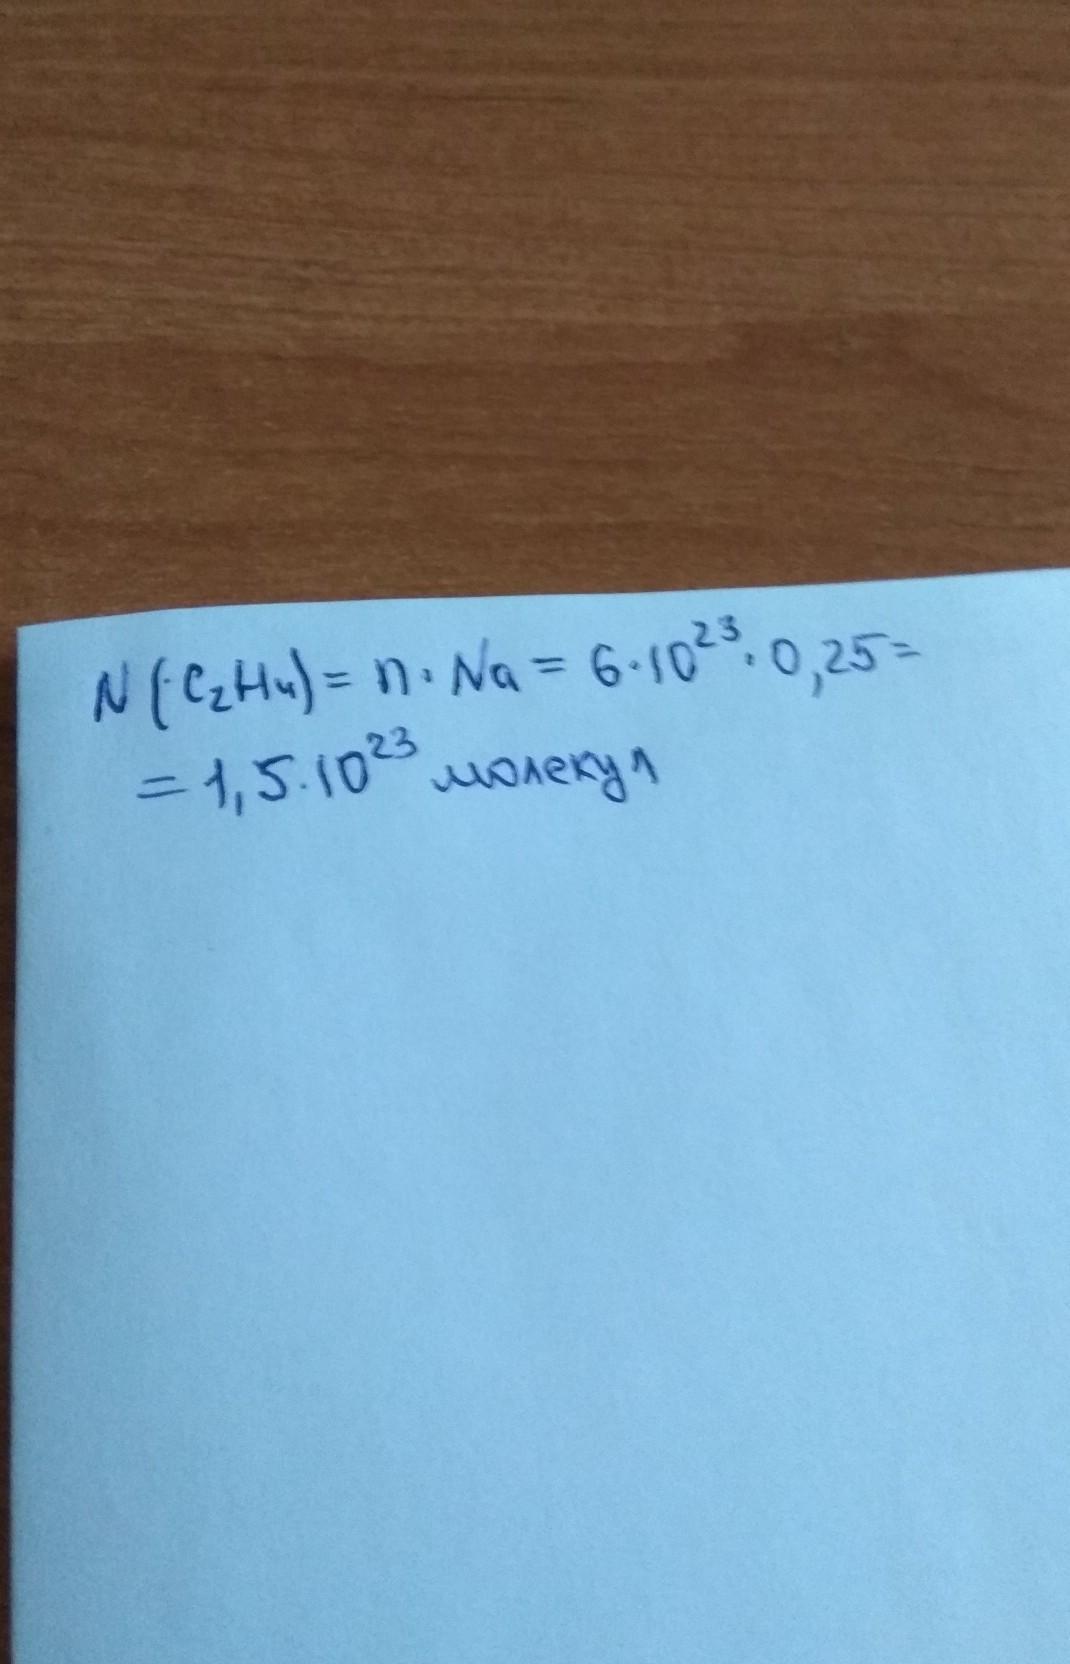 N(C₂H₄) = n · Na = 6 · 10²³ · 0,25 =
= 1,5 · 10²³ молекул